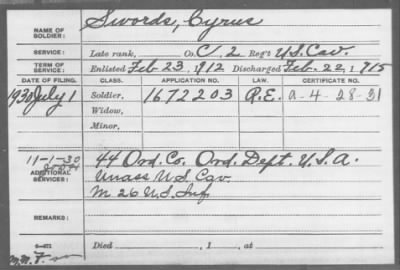 NAME OF SOLDIER: Swords, Cyrus
SERVICE: Late rank, Co. C, 2 Reg't U.S. Cav.
TERM OF SERVICE: Enlisted Feb 23, 1912 Discharged Feb. 22, 1915
DATE OF FILING. CLASS. APPLICATION NO. LAW. CERTIFICATE NO.
1930 July 1 Soldier, 1672203 R.E. a-4-28-31
Widow,
Minor,
11-1-30
ADDITIONAL SERVICES:
44 Ord. Co. Ord. Dept. U.S.A.
Unass U.S. Cav.
M 26 U.S. Inf.
REMARKS:
Died , 1 , at